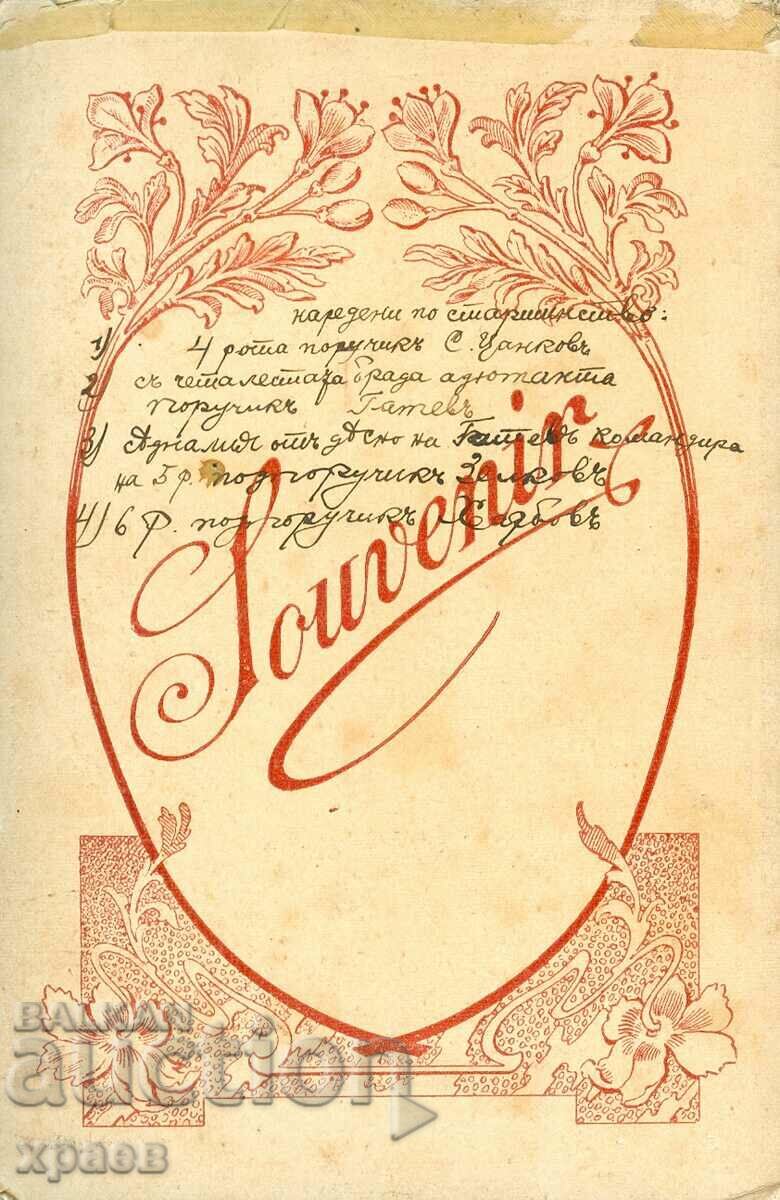 наредени по старшинство:
1) 4 рота поручикъ С. Цанковъ
2 съ четалестаза брада адютанта
поручикъ Гатевъ
3) сѣдналия отъ дѣсно на Гатевъ командира
на 5 р. подпоручикъ Зелковъ
4) 6 р. подпоручикъ
Souvenir
BALKAN
auction
храев